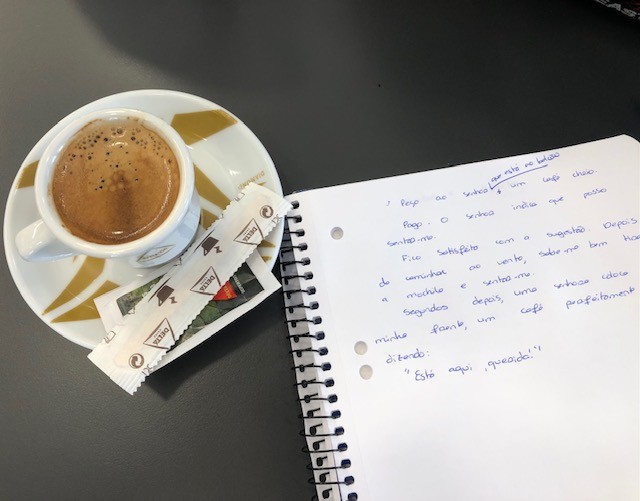 que está no balcão
Peço ao senhor um café cheio.
Pago. O senhor indica que posso
sentar-me.
Fico satisfeita com a sugestão. Depois
de caminhar ao vento, sabe-me bem tirar
a mochila e sentar-me.
Segundos depois, uma senhora coloca
minha frente, um café perfeitamente
dizendo:
"Está aqui, querida!"
DELTA
DELTA
DELTA